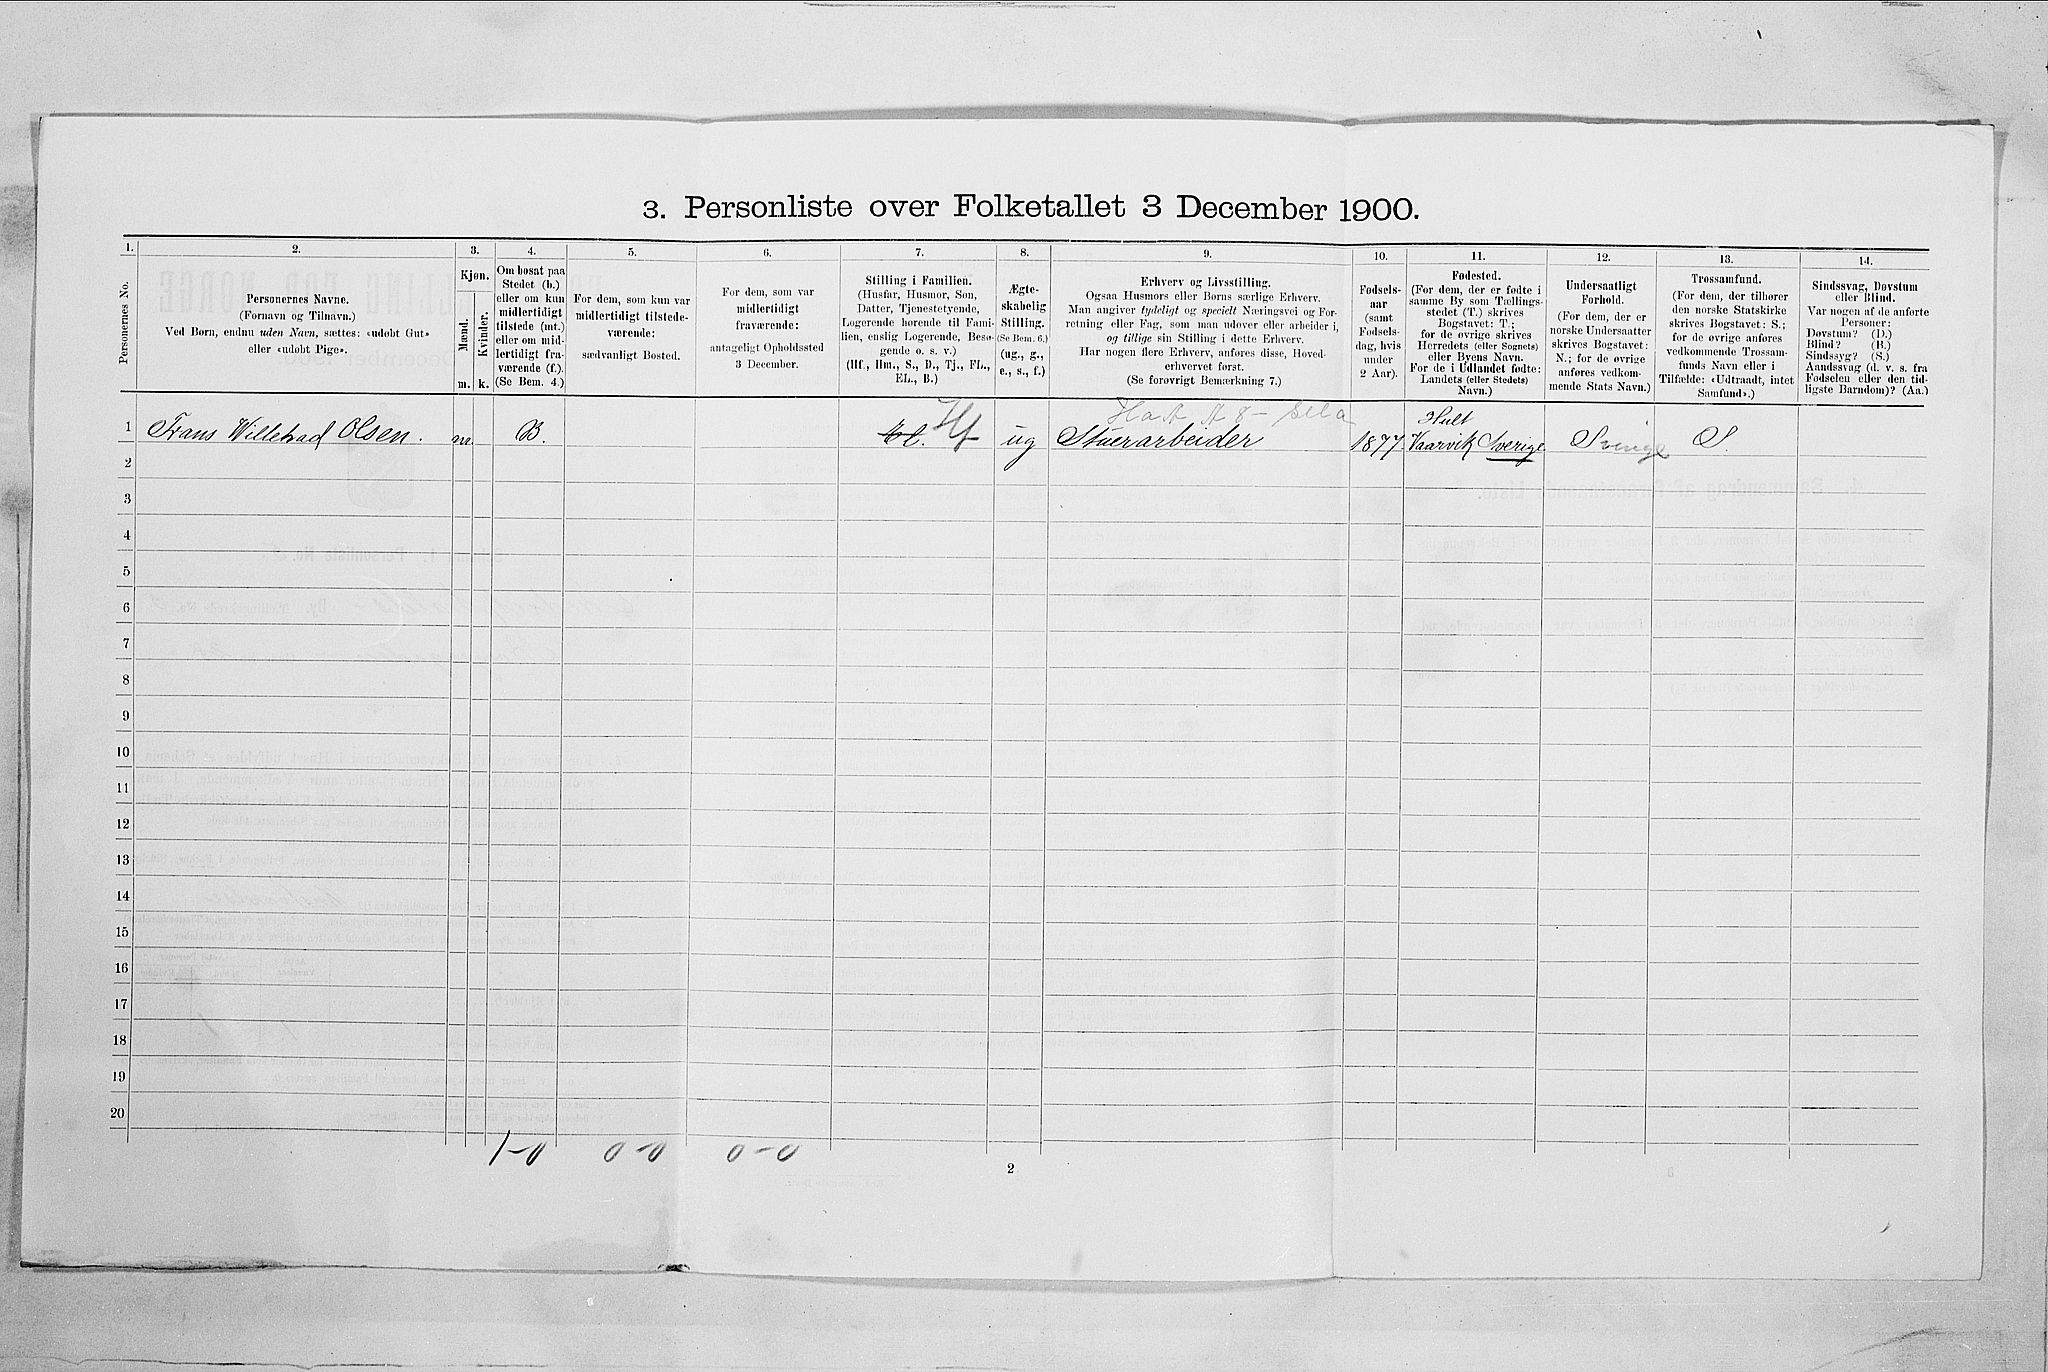 3. Personliste over Folketallet 3 December 1900.
1.
2.
3.
4.
5.
6.
7.
8.
9.
10.
11.
12.
13.
14.
Personernes No.
Personernes Navne.
(Fornavn og Tilnavn.)
Ved Børn, endnu uden Navn, sættes: «udøbt Gut»
eller «udøbt Pige».
Kjøn.
Mænd.
Kvinder.
m.
k.
Om bosat paa
Stedet (b.)
eller om kun
midlertidigt
tilstede (mt.)
eller om mid-
lertidigt fra-
værende (f.).
(Se Bem. 4.)
For dem, som kun var
midlertidigt tilstede-
værende:
sædvanligt Bosted.
For dem, som var
midlertidigt
fraværende:
antageligt Opholdssted
3 December.
Stilling i Familien.
(Husfar, Husmor, Søn,
Datter, Tjenestetyende,
Logerende hørende til Fami-
lien, enslig Logerende, Besø-
gende o. s. v.)
(Hf., Hm., S., D., Tj., FL.,
EL., B.)
Ægte-
skabelig
Stilling.
(Se Bem. 6.)
(ug., g.,
e., s., f.)
Erhverv og Livsstilling.
Ogsaa Husmors eller Børns særlige Erhverv.
Man angiver tydeligt og specielt Næringsvei og For-
retning eller Fag, som man udøver eller arbeider i,
og tillige sin Stilling i dette Erhverv.
Har nogen flere Erhverv, anføres disse, Hoved-
erhvervet først.
(Se forøvrigt Bemærkning 7.)
Fødsels-
aar
(samt
Fødsels-
dag, hvis
under
2 Aar).
Fødested.
(For dem, der er fødte i
samme By som Tællings-
stedet (T.) skrives
Bogstavet: T.;
for de øvrige skrives
Herredets (eller Sognets)
eller Byens Navn.
For de i Udlandet fødte:
Landets (eller Stedets)
Navn.)
Undersaatligt
Forhold.
(For dem, der er
norske Undersaatter
skrives Bogstavet:
N.; for de øvrige
anføres vedkom-
mende Stats Navn.)
Trossamfund.
(For dem, der tilhører
den norske Statskirke
skrives Bogstavet: S.;
for de øvrige anføres
vedkommende Trossam-
funds Navn eller i
Tilfælde: «Udtraadt, intet
Samfund».)
Sindssvag, Døvstum
eller Blind.
Var nogen af de anførte
Personer:
Døvstum? (D.)
Blind? (B.)
Sindssyg? (S.)
Aandssvag (d. v. s. fra
Fødselen eller den tid-
ligste Barndom)? (Aa.)
Hf
Hult
1 Frans Willehad Olsen. m. B. ug Stuerarbeider 1877 Vaarvik Sverige. Sverige S.
2
3
4
5
6
7
8
9
10
11
12
13
14
15
16
17
18
19
20
1-0 0-0 0-0
2